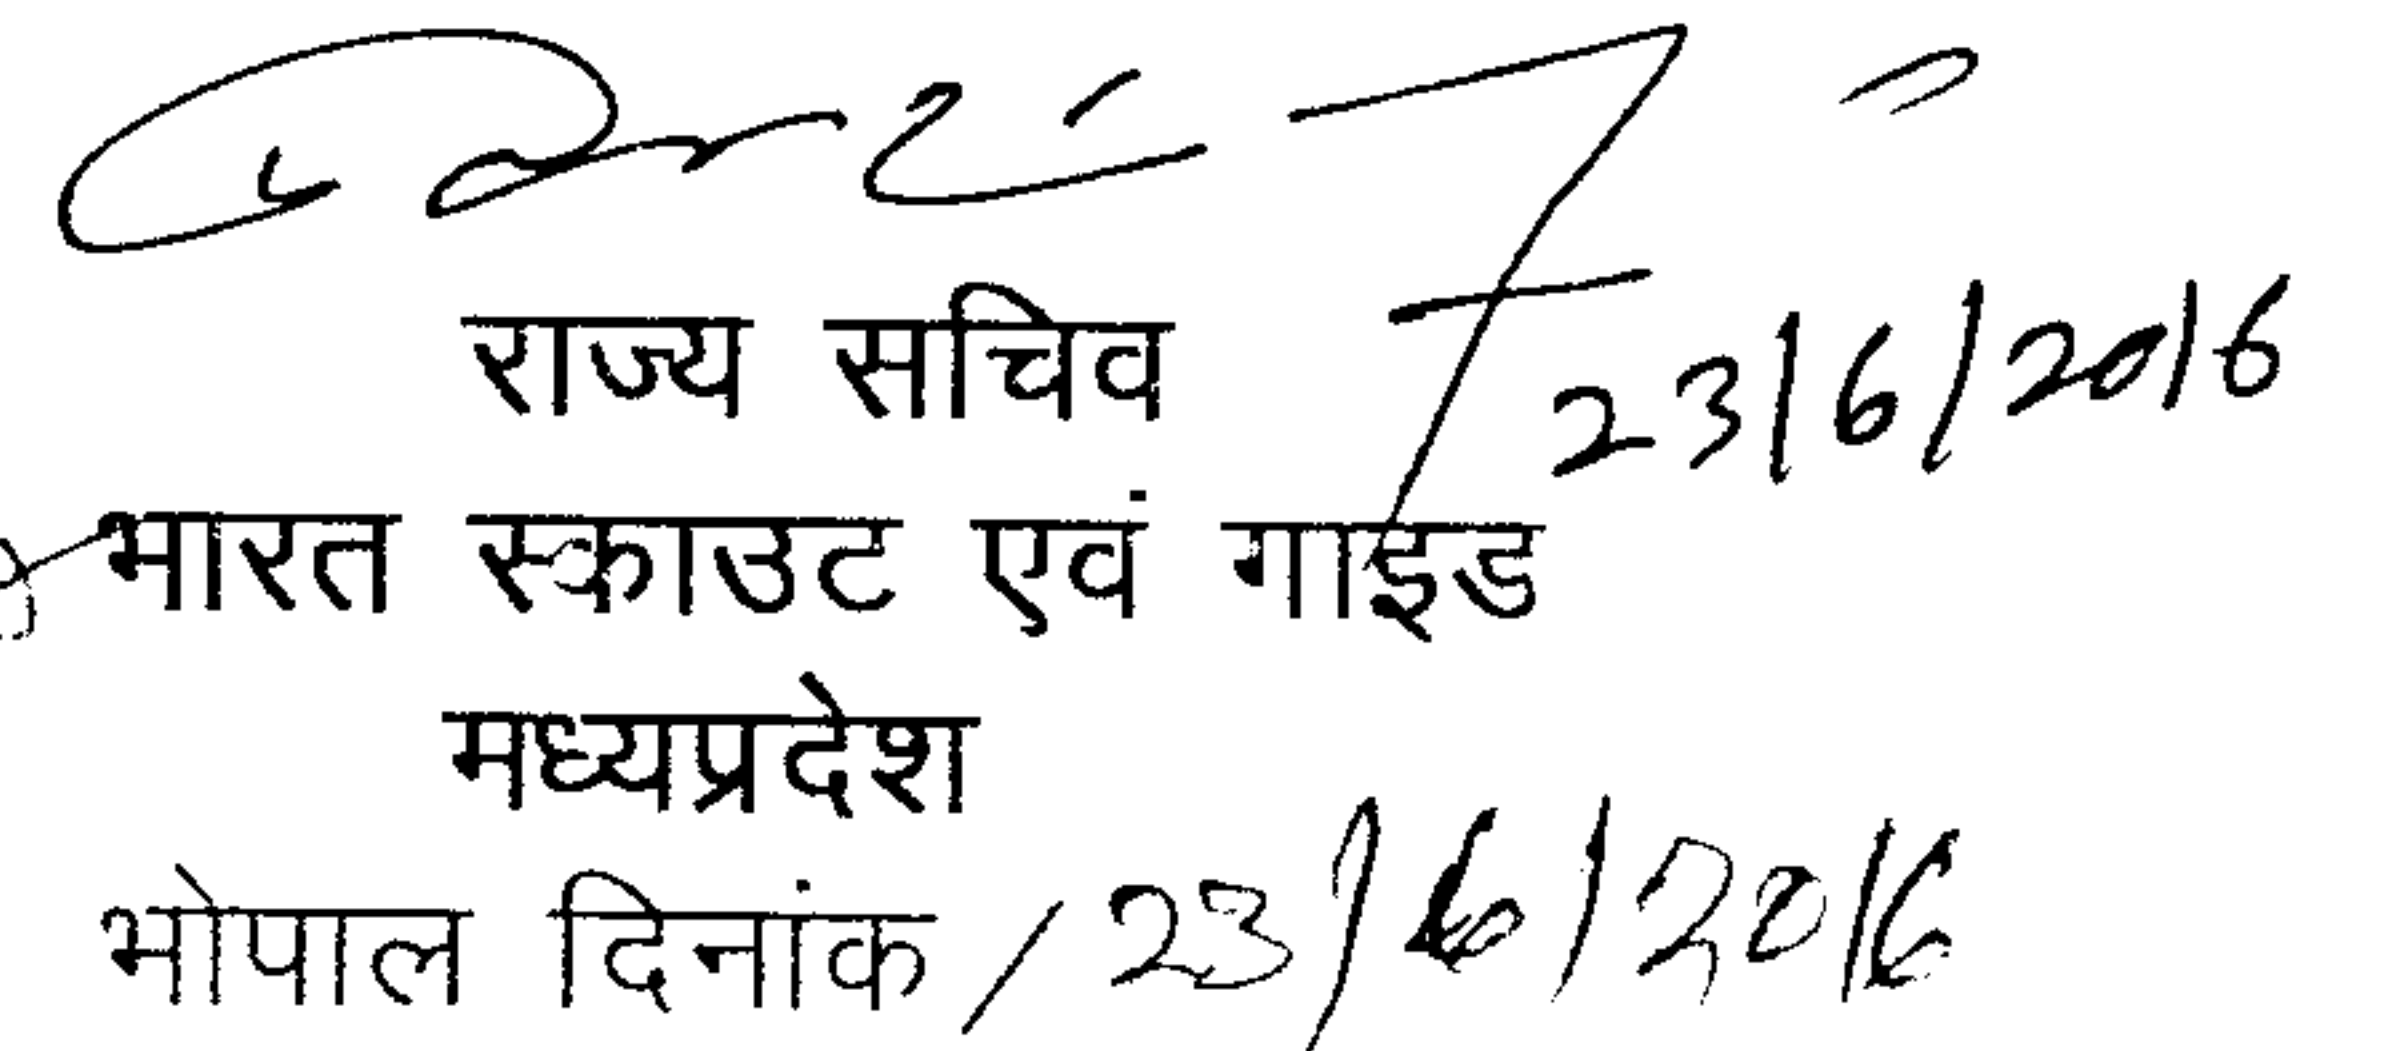 राज्य सचिव
23/6/2016
भारत स्काउट एवं गाइड
मध्यप्रदेश
भोपाल दिनांक / 23/6/2016